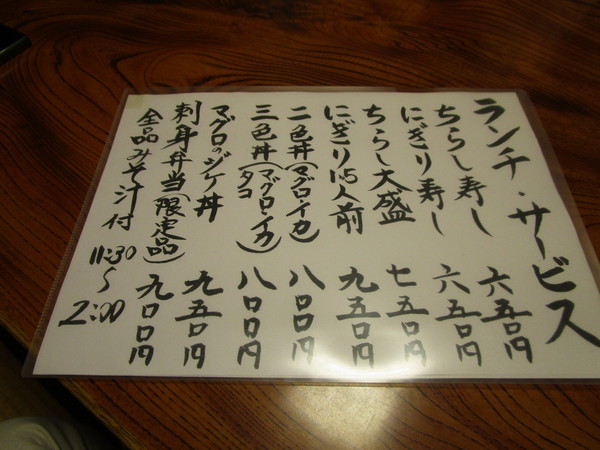 ランチ・サービス
ちらし寿し 六五〇円
にぎり寿し 六五〇円
ちらし大盛 七五〇円
にぎり1.5人前 九五〇円
二色丼(マグロ・イカ) 八〇〇円
三色丼(マグロ・イカ タコ) 八〇〇円
マグロのヅケ丼 九五〇円
刺身弁当(限定品) 九〇〇円
全品みそ汁付 11:30〜2:00